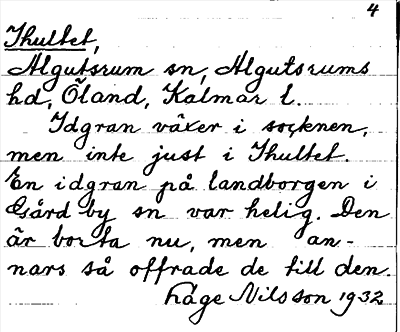 4
Thultet,
Algutsrum sn, Algutsrums
hd, Öland, Kalmar l.
Idgran växer i socknen,
men inte just i Thultet.
En idgran på landborgen i
Gårdby sn var helig. Den
är borta nu, men an-
nars så offrade de till den.
Håge Nilsson 1932